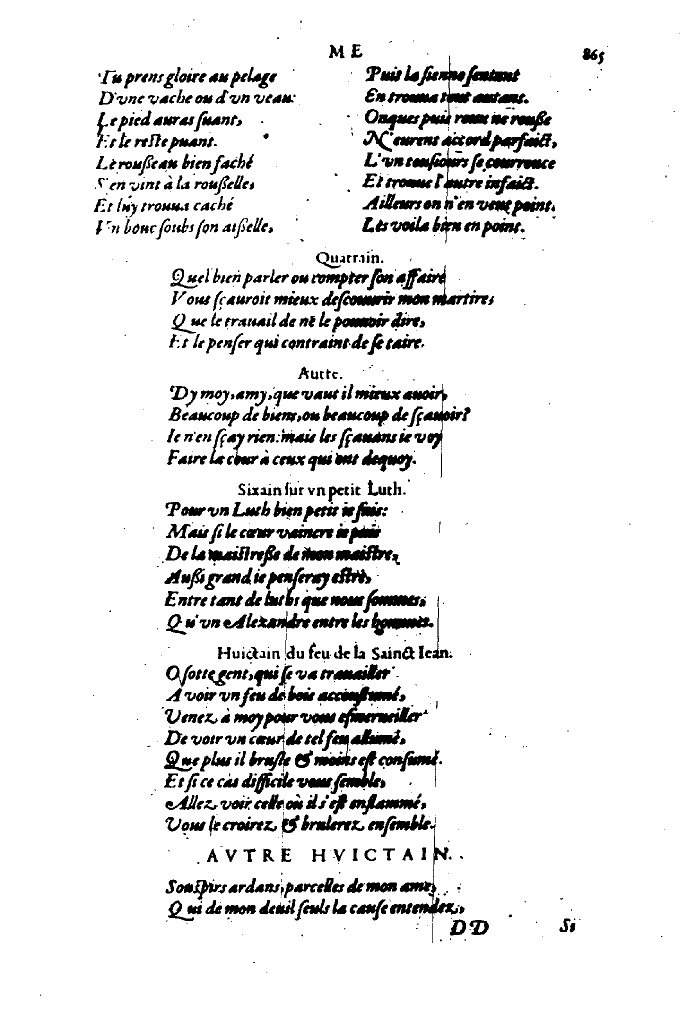 ME
865
Tu prens gloire au pelage
D'vne vache ou d'vn veau:
Le pied auras suant,
Et le reste puant.
Le rousseau bien faché
S'en vint à la rousselle,
Et luy trouua caché
Vn bouc soubs son aisselle,
Puis la sienne sentant
En trouua tout autant.
Onques puis roux ne rousse
N'eurent accord parfaict,
L'vn tousiours se courrouce
Et trouue l'autre infaict.
Ailleurs on n'en veut point,
Les voila bien en point.
Quatrain.
Quel bien parler ou compter son affaire
Vous sçauroit mieux descouurir mon martire,
Que le trauail de ne le pouuoir dire,
Et le penser qui contraint de se taire.
Autre.
Dy moy, amy, que vaut il mieux auoir,
Beaucoup de biens, ou beaucoup de sçauoir?
Ie n'en sçay rien: mais les sçauans ie voy
Faire la cour à ceux qui ont dequoy.
Sixain sur vn petit Luth.
Pour vn Luth bien petit ie suis:
Mais si le cœur vaincre ie puis
De la maistresse de mon maistre,
Aussi grand ie penseray estre,
Entre tant de luths que nous sommes,
Qu'vn Alexandre entre les hommes.
Huictain du feu de la Sainct Iean.
O sotte gent, qui se va trauailler
A voir vn feu de bois accoustumé,
Venez à moy pour vous esmerueiller
De voir vn cœur de tel feu allumé,
Que plus il brusle & moins est consumé.
Et si ce cas difficile vous semble,
Allez voir celle où il s'est enflammé,
Vous le croirez & brulerez ensemble.
AVTRE HVICTAIN.
Souspirs ardans, parcelles de mon ame,
Qui de mon dueil seuls la cause entendez,
DD
Si